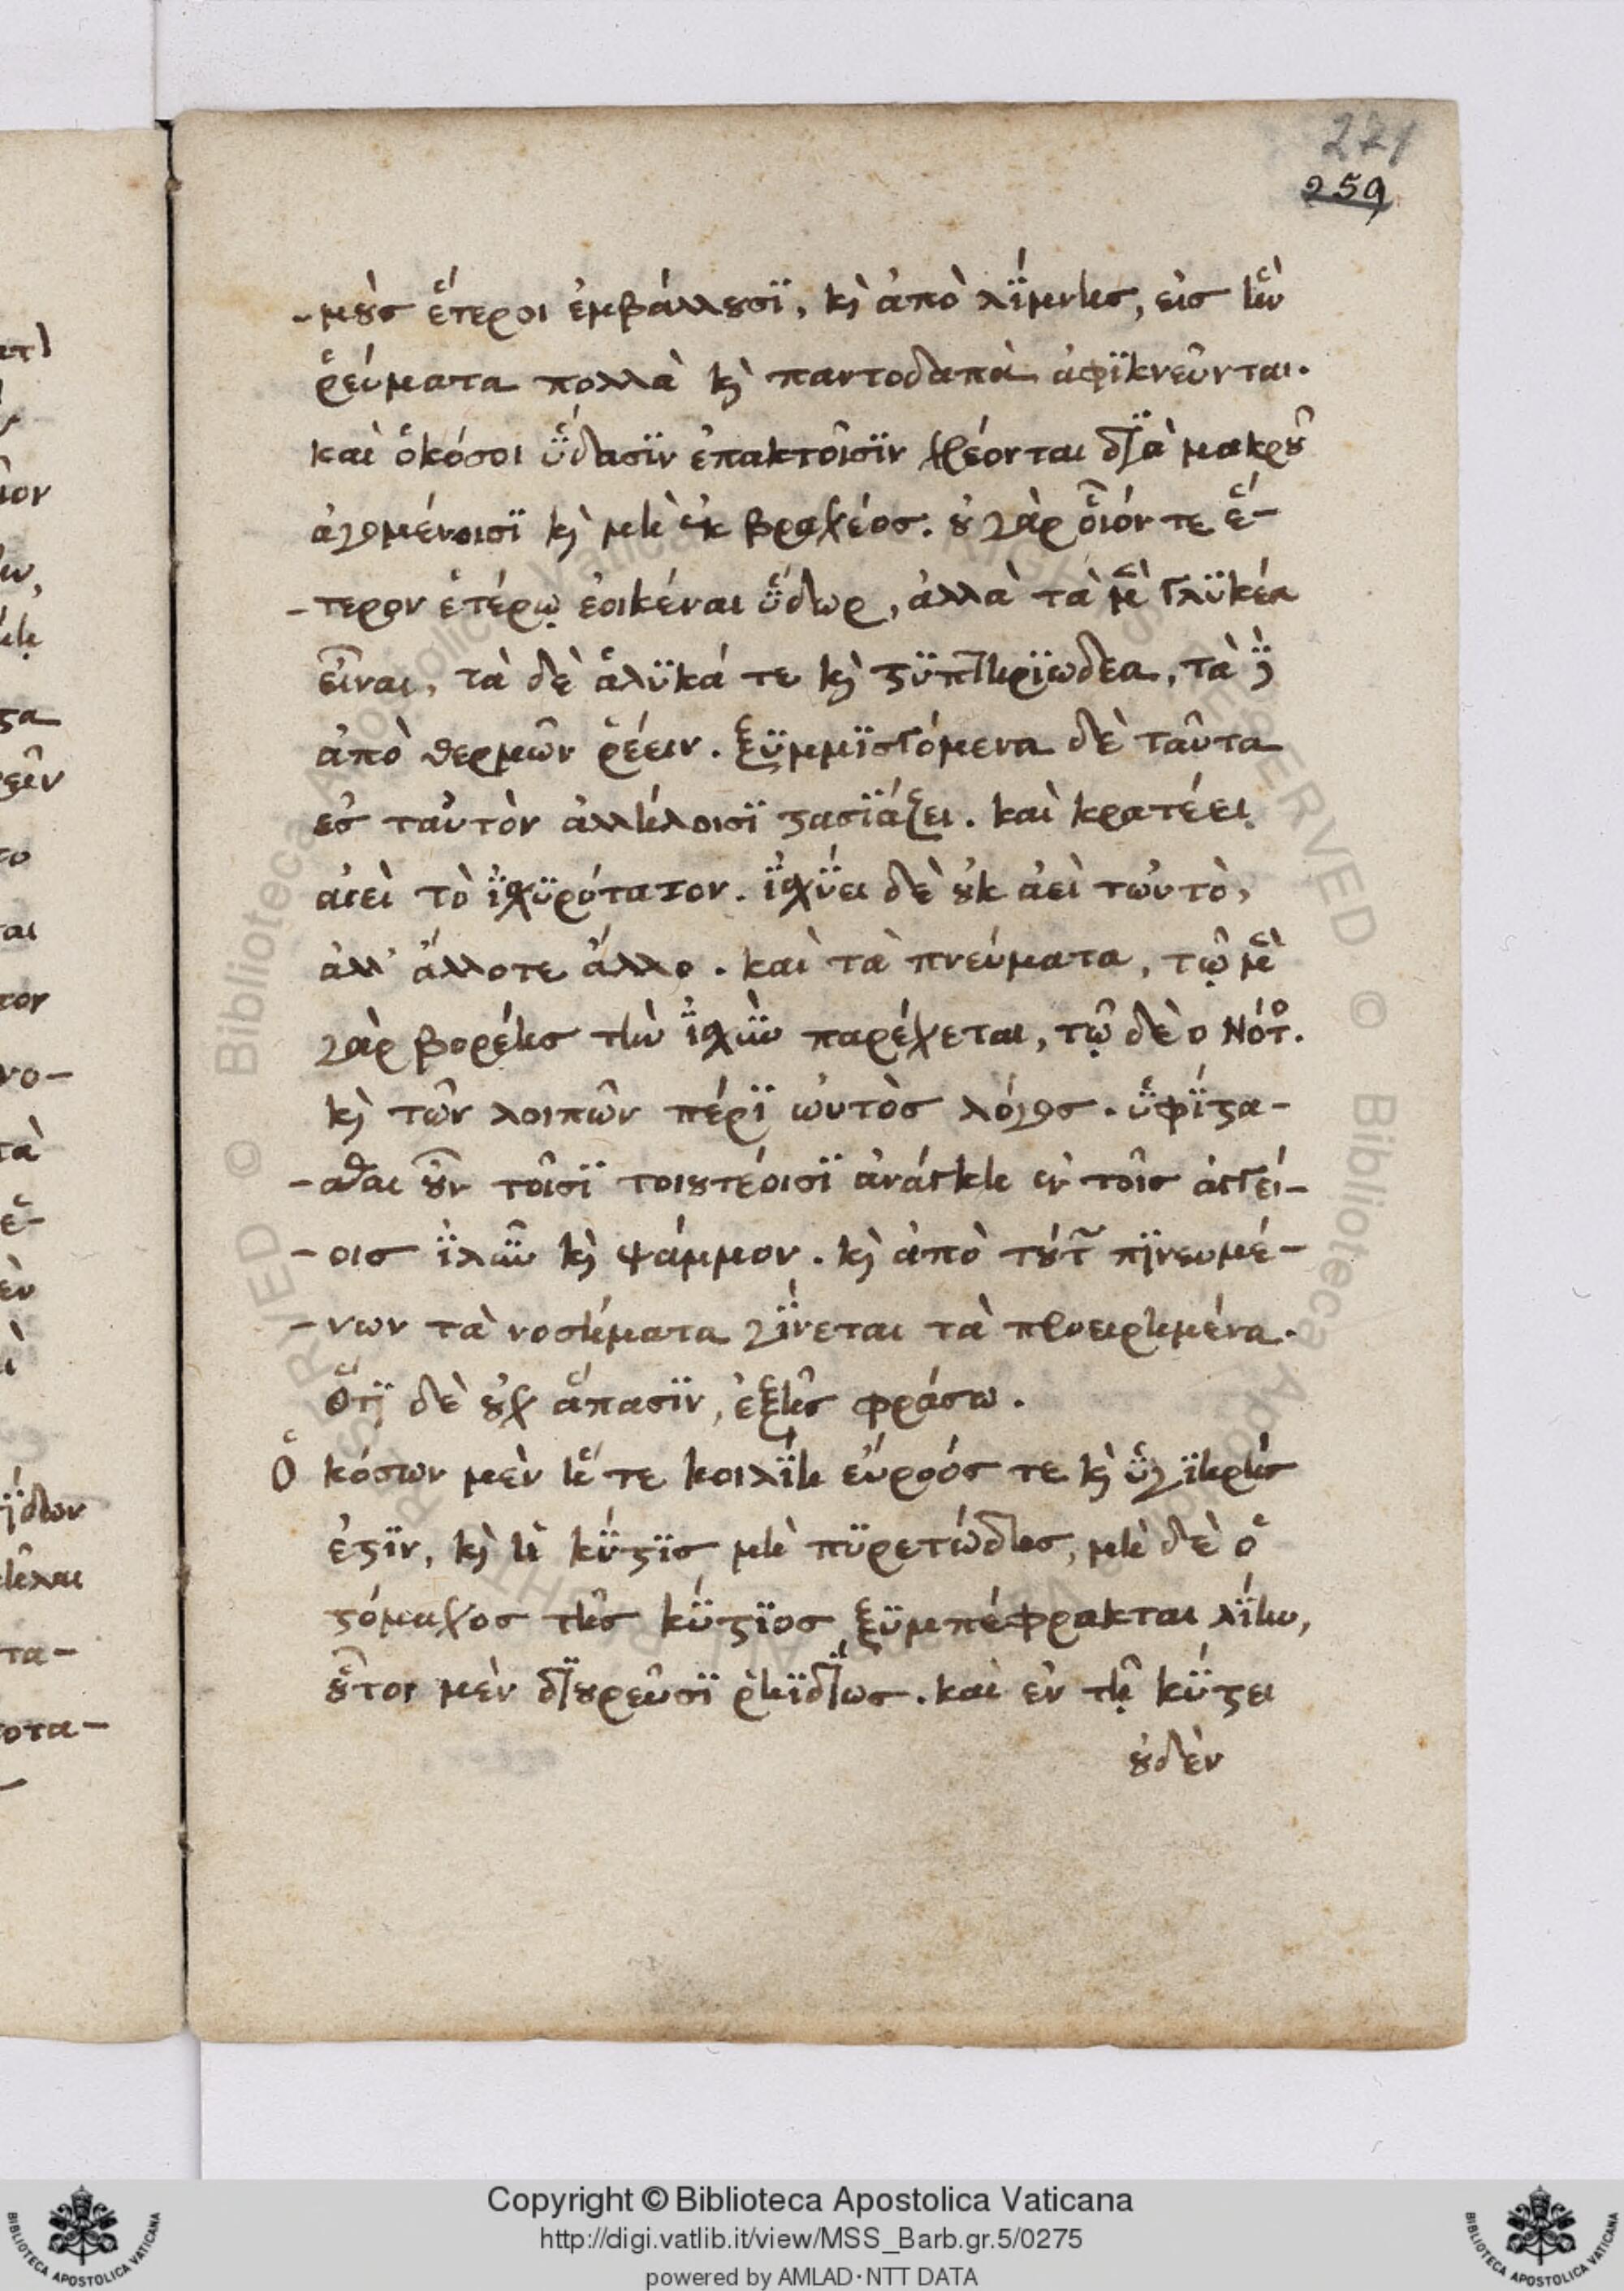 271
259
-μοὺς ἕτεροι ἐμβάλλουσϊ, κὶ ἀπὸ λΐμνης, εἰς ἣν
ῥεύματα πολλὰ κὶ παντοδαπὰ ἀφϊκνεῦνται.
καὶ ὁκόσοι ὕδασϊν ἐπακτοῖσϊν χρέονται διὰ μακροῦ
ἀγομένοισϊ κὶ μὴ ἐκ βραχέος. οὐ γὰρ οἷόν τε ἕ-
-τερον ἑτέρῳ ἐοικέναι ὕδωρ, ἀλλὰ τὰ μὲν γλϋκέα
εἶναι, τὰ δὲ ἁλϋκά τε κὶ στϋπτηρϊώδεα, τὰ δὲ
ἀπὸ θερμῶν ῥέειν. ξϋμμϊσγόμενα δὲ ταῦτα
ἐς ταὐτὸν ἀλλήλοισϊ στασϊάζει. καὶ κρατέει
αἰεὶ τὸ ἰσχϋρότατον. ἰσχΰει δὲ οὐκ ἀεὶ τωὐτὸ,
ἀλλ' ἄλλοτε ἄλλο. καὶ τὰ πνεύματα, τῷ μὲν
γὰρ βορέης τὴν ἰσχὺν παρέχεται, τῷ δὲ ο Νότος.
κὶ τῶν λοιπῶν πέρϊ ωὐτὸς λόγος. ὑφΐστα-
-σθαι οὖν τοῖσϊ τοιουτέοισϊ ἀνάγκη ἐν τοῖς ἀγγεί-
-οις ἰλὺν κὶ ψάμμον. κὶ ἀπὸ τούτων πϊνευμέ-
-νων τὰ νοσήματα γΐνεται τὰ προειρημένα.
Ὅτϊ δὲ οὐχ ἅπασϊν, ἑξῆς φράσω.
Ὁκόσων μὲν ἥ τε κοιλΐη εὔροός τε κὶ ὑγϊηρής
ἐστϊν, κὶ ἡ κΰστϊς μὴ πϋρετώδης, μὴ δὲ ὁ
στόμαχος τῆς κΰστϊος ξϋμπέφρακται λΐην,
οὗτοι μὲν διουρεῦσϊ ῥηϊδΐως. καὶ ἐν τῇ κΰστει
οὐδὲν
Copyright © Biblioteca Apostolica Vaticana
http://digi.vatlib.it/view/MSS_Barb.gr.5/0275
powered by AMLAD·NTT DATA